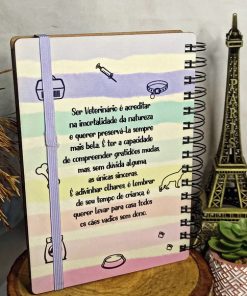 Ser Veterinário é acreditar
na imortalidade da natureza
e querer preservá-la sempre
mais bela. É ter a capacidade
de compreender gratidões mudas,
mas, sem dúvida alguma,
as únicas sinceras.
É adivinhar olhares, é lembrar
de seu tempo de criança, é
querer levar para casa todos
os cães vadios sem dono.